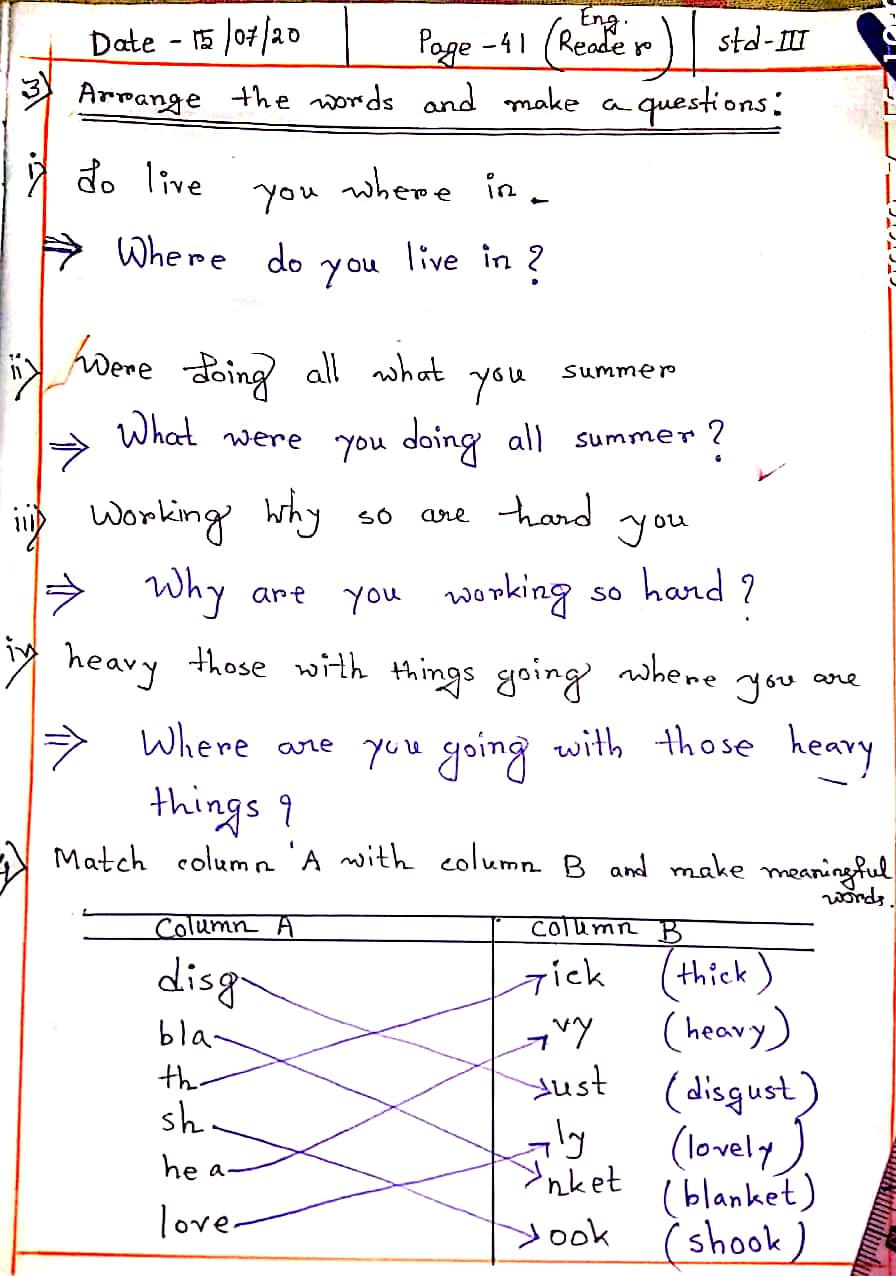 Date - 15/07/20 Page - 41 (Eng. Reader) std-III
3) Arrange the words and make a questions:
i) do live you where in.
⇒ Where do you live in?
ii) Were doing all what you summer
⇒ What were you doing all summer?
iii) Working Why so are hard you
⇒ Why are you working so hard?
iv) heavy those with things going where you are
⇒ Where are you going with those heavy
things?
Match column 'A with column B and make meaningful
words.
Column A column B
disg ick (thick)
bla vy (heavy)
th ust (disgust)
sh ly (lovely)
hea nket (blanket)
love ook (shook)